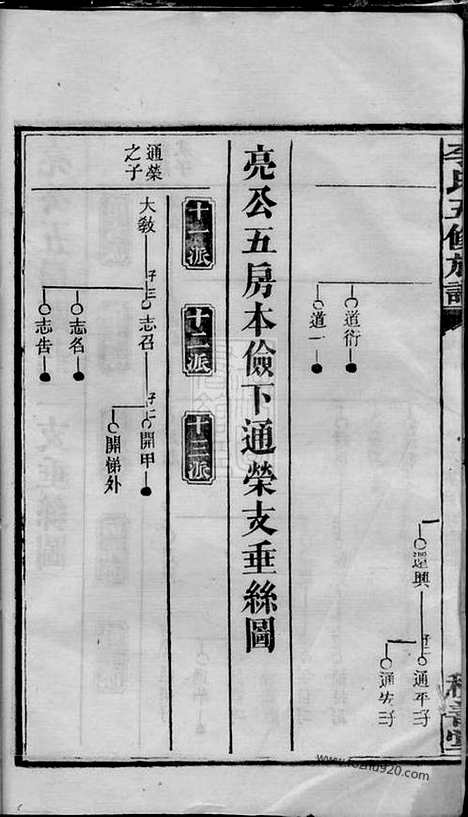 李氏五修族譜
遠興
子二
通平 子
通安 子
道衍
道一
亮公五房本儉下通榮支垂絲圖
十一派
十二派
十三派
通榮之子
大敎
子三
志召
志名
志告
子二
開甲
開梯外
www.fozhu920.com